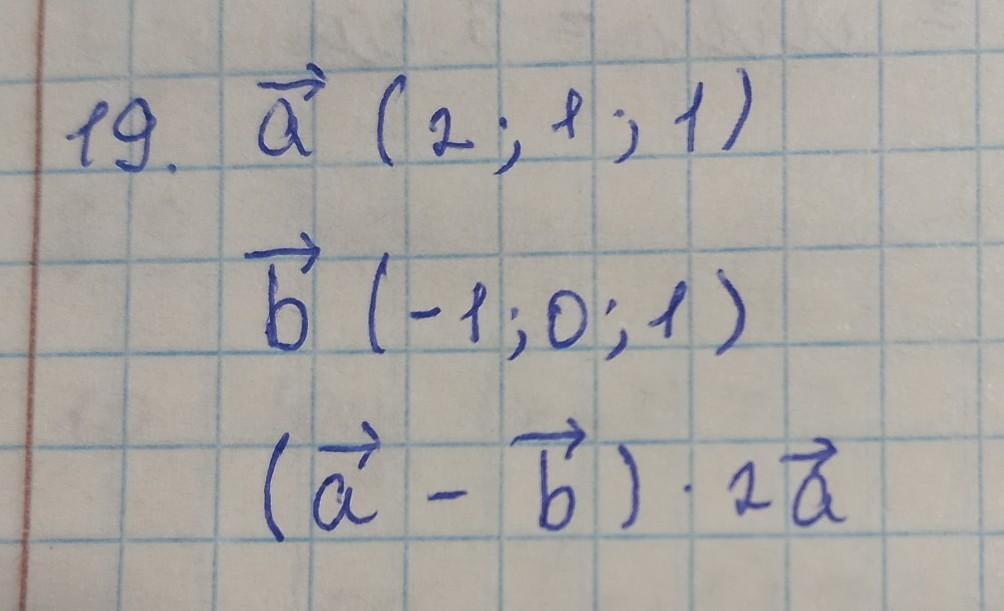 19. a⃗ (2; 1; 1)
b⃗ (-1; 0; 1)
(a⃗ - b⃗) · 2a⃗